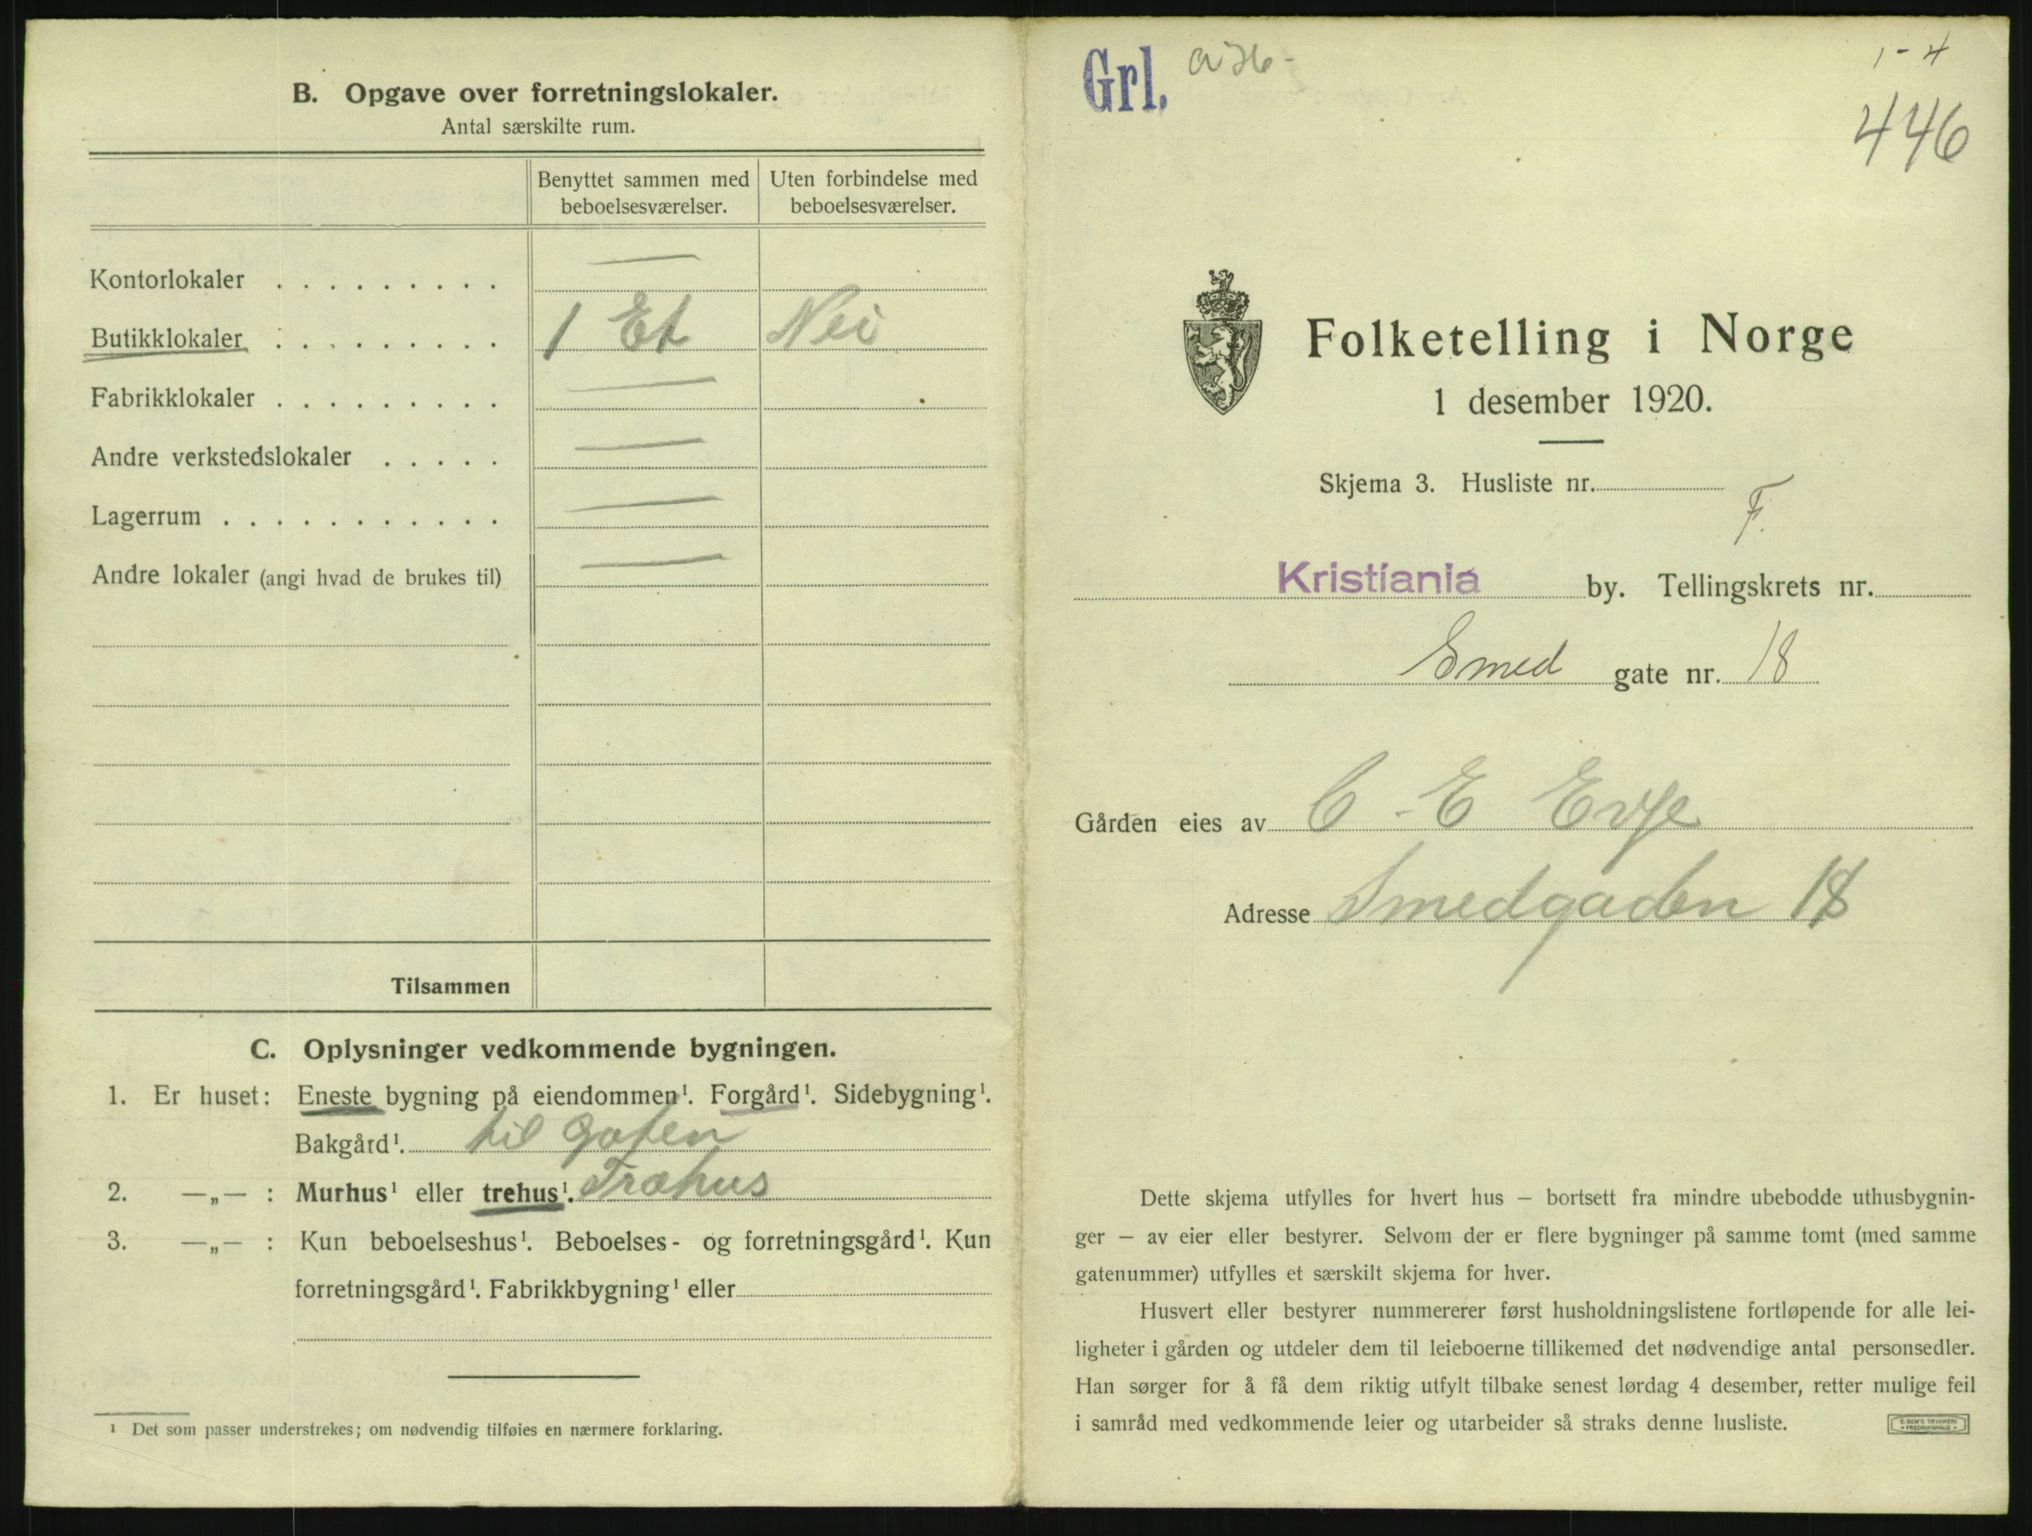 B. Opgave over forretningslokaler.
Antal særskilte rum.
Benyttet sammen med beboelsesværelser.
Uten forbindelse med beboelsesværelser.
Kontorlokaler . . . . . . . . . —
Butikklokaler . . . . . . . . . 1 Et Nei
Fabrikklokaler . . . . . . . . . —
Andre verkstedslokaler . . . . . —
Lagerrum . . . . . . . . . . . —
Andre lokaler (angi hvad de brukes til) —
Tilsammen
C. Oplysninger vedkommende bygningen.
1. Er huset: Eneste bygning på eiendommen¹. Forgård¹. Sidebygning¹.
Bakgård¹. til gaten
2. —„— : Murhus¹ eller trehus¹. Træhus
3. —„— : Kun beboelseshus¹. Beboelses- og forretningsgård¹. Kun
forretningsgård¹. Fabrikkbygning¹ eller
¹ Det som passer understrekes; om nødvendig tilføies en nærmere forklaring.
Grl.
1-4
446
Folketelling i Norge
1 desember 1920.
Skjema 3. Husliste nr.
F.
Kristiania by. Tellingskrets nr.
Smed gate nr. 18
Gården eies av C - E Evje
Adresse Smedgaden 18
Dette skjema utfylles for hvert hus — bortsett fra mindre ubebodde uthusbygnin-
ger — av eier eller bestyrer. Selvom der er flere bygninger på samme tomt (med samme
gatenummer) utfylles et særskilt skjema for hver.
Husvert eller bestyrer nummererer først husholdningslistene fortløpende for alle lei-
ligheter i gården og utdeler dem til leieboerne tillikemed det nødvendige antal personsedler.
Han sørger for å få dem riktig utfylt tilbake senest lørdag 4 desember, retter mulige feil
i samråd med vedkommende leier og utarbeider så straks denne husliste.